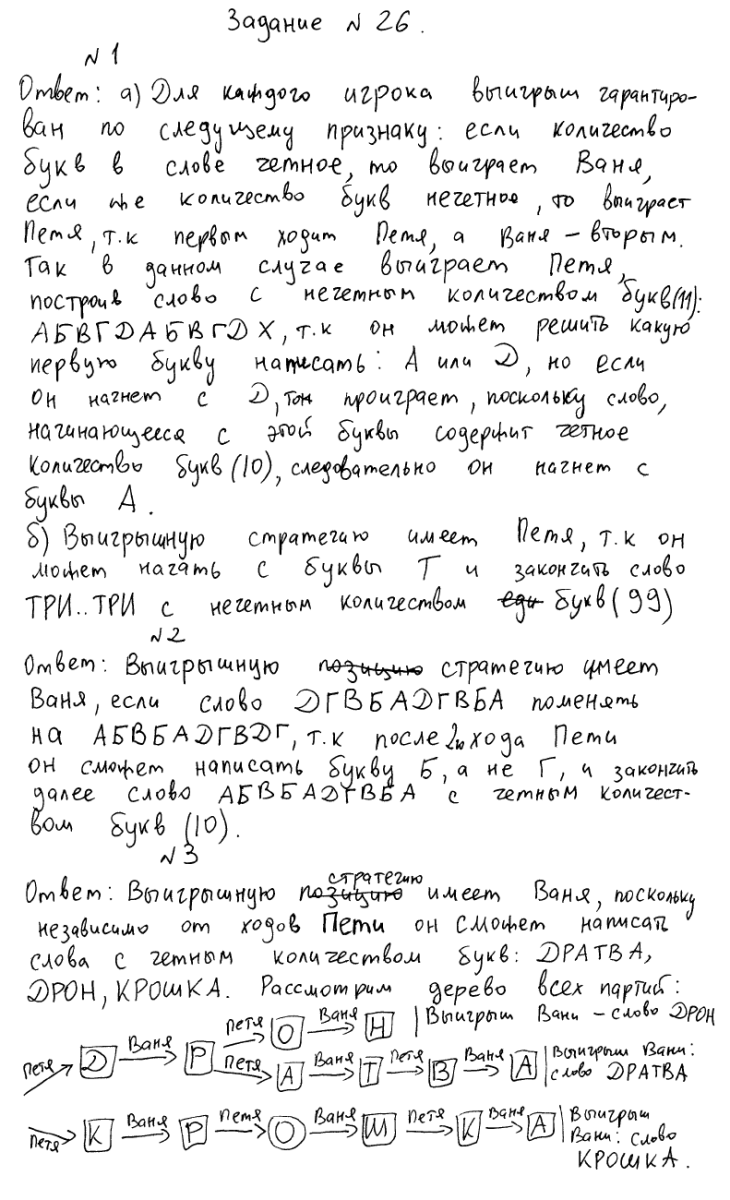 Задание № 26.
№ 1
Ответ: а) Для каждого игрока выигрыш гарантиро-
ван по следующему признаку: если количество
букв в слове четное, то выиграет Ваня,
если же количество букв нечетное, то выиграет
Петя, т.к первым ходит Петя, а Ваня – вторым.
Так в данном случае выиграет Петя,
построив слово с нечетным количеством букв(11):
АБВГДАБВГДХ, т.к он может решить какую
первую букву написать: А или Д, но если
он начнет с Д, то проиграет, поскольку слово,
начинающееся с этой буквы содержит четное
количество букв (10), следовательно он начнет с
буквы А.
б) Выигрышную стратегию имеет Петя, т.к он
может начать с буквы Т и закончить слово
ТРИ..ТРИ с нечетным количеством букв (99)
№2
Ответ: Выигрышную позицию стратегию имеет
Ваня, если слово ДГВБАДГВБА поменять
на АБВБАДГВДГ, т.к после 2го хода Пети
он сможет написать букву Б, а не Г, и закончить
далее слово АБВБАДГВБА с четным количест-
вом букв (10).
№3
стратегию
Ответ: Выигрышную позицию имеет Ваня, поскольку
независимо от ходов Пети он сможет написать
слова с четным количеством букв: ДРАТВА,
ДРОН, КРОШКА. Рассмотрим дерево всех партий:
Петя Д Ваня Р Петя О Ваня Н Выигрыш Вани – слово ДРОН
Петя А Ваня Т Петя В Ваня А Выигрыш Вани:
слово ДРАТВА
Петя К Ваня Р Петя О Ваня Ш Петя К Ваня А Выигрыш
Вани: слово
КРОШКА.